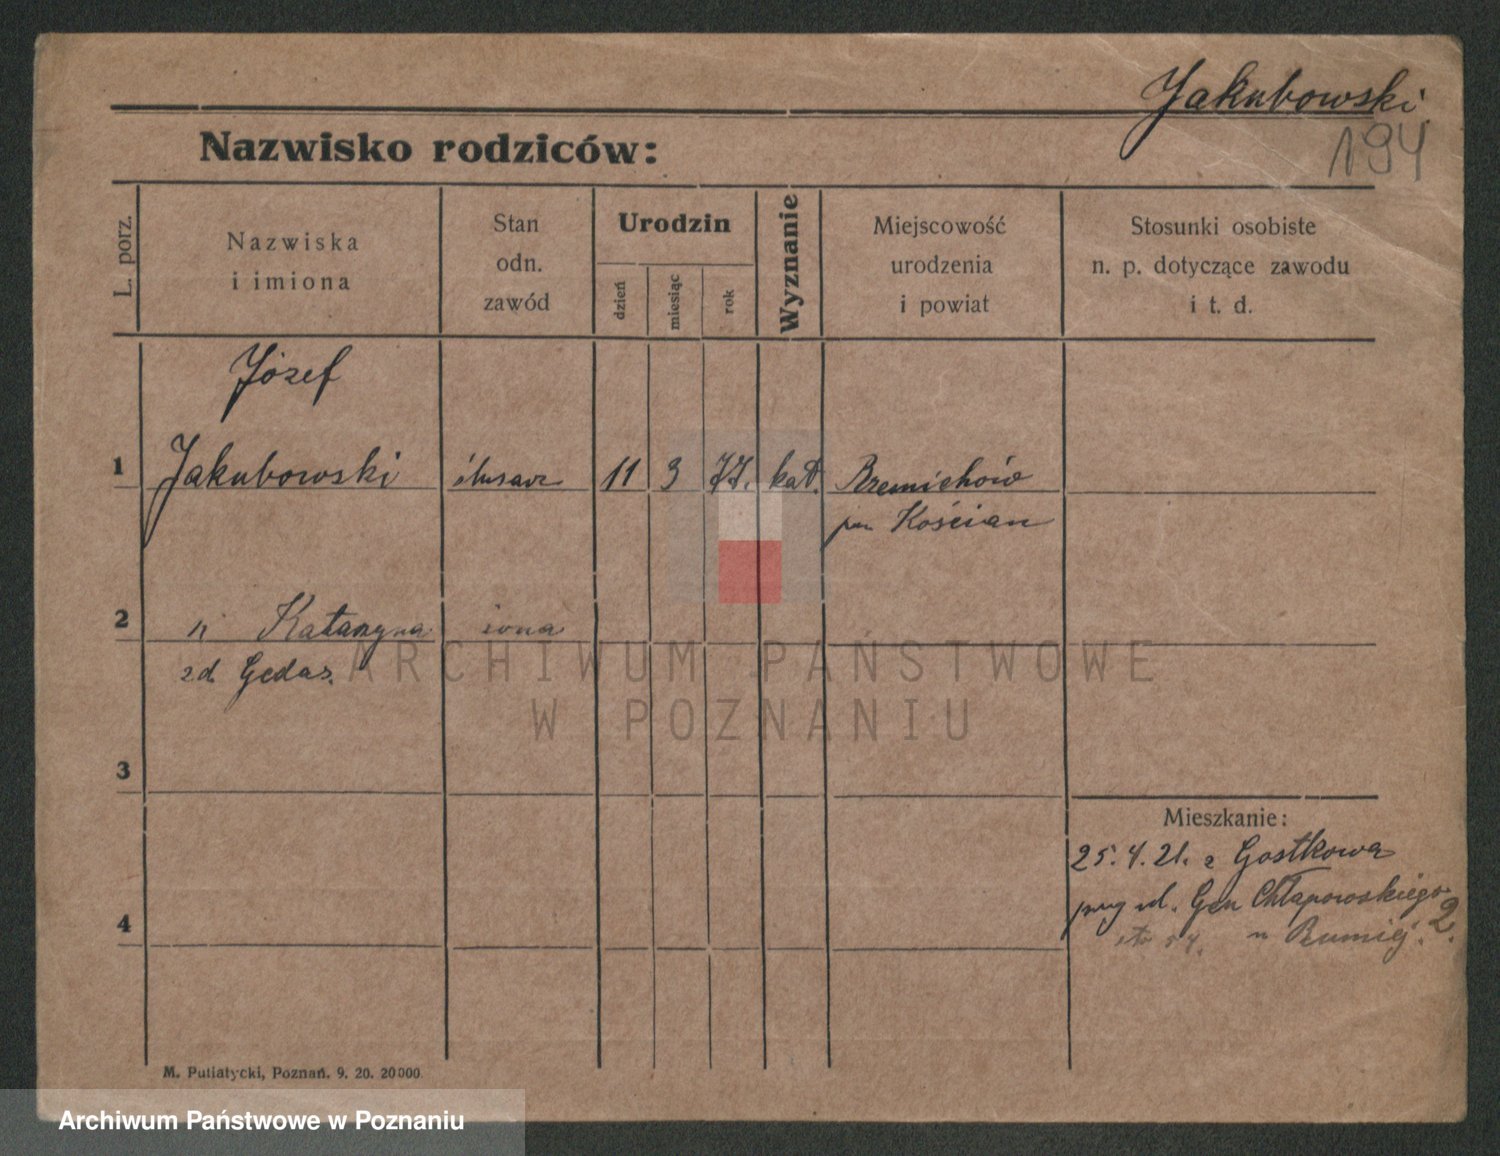 Jakubowski
194
Nazwisko rodziców:
L. porz.
Nazwiska
i imiona
Stan
odn.
zawód
Urodzin
dzień
miesiąc
rok
Wyznanie
Miejscowość
urodzenia
i powiat
Stosunki osobiste
n. p. dotyczące zawodu
i t. d.
Józef
1 Jakubowski ślusarz 11 3 77. kat.
Kościan
2 Katarzyna żona
zd Gedas.
ARCHIWUM PAŃSTWOWE
W POZNANIU
3
Mieszkanie:
25.4.21. z Gostkowa
ul. Gen Chłapowskiego 2.
4
M. Putiatycki, Poznań. 9. 20. 20000
Archiwum Państwowe w Poznaniu